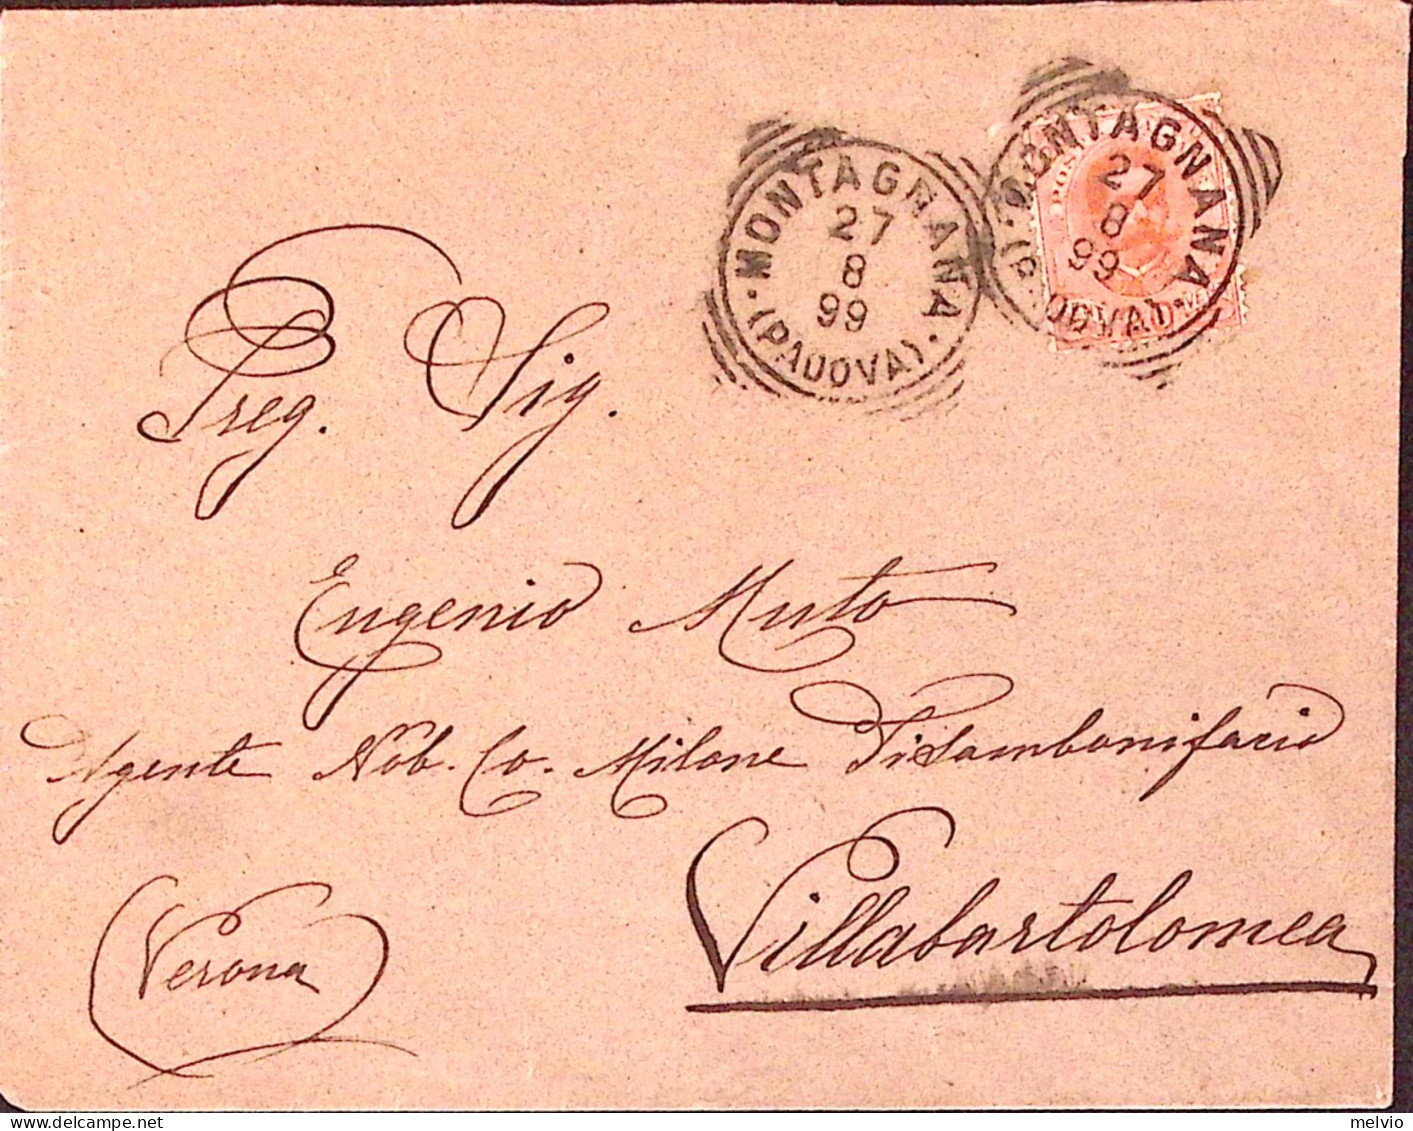 MONTAGNANA
27
8
99
(PADOVA)
MONTAGNANA
27
8
99
(PADOVA)
POS
Preg. Sig.
Eugenio Muto
Agente Nob. Co. Milone Di Sambonifacio
Villabartolomea
(Verona)
melvio